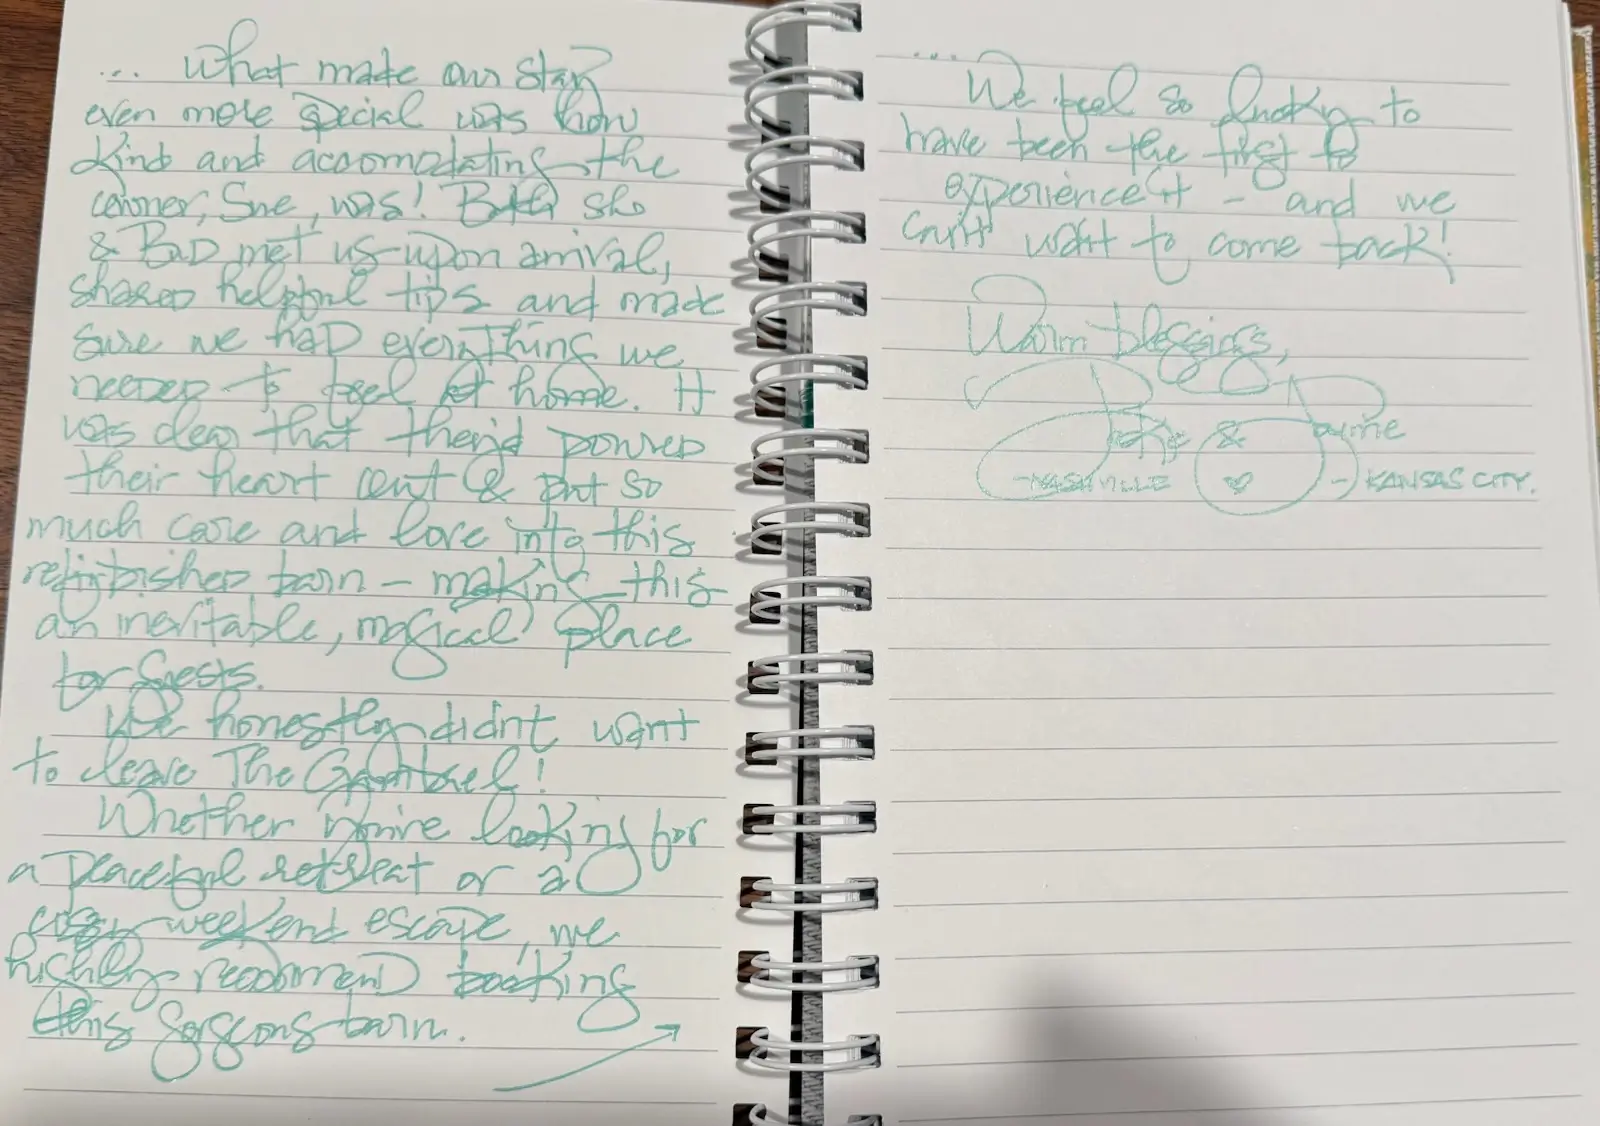 ... What made our stay
even more special was how
kind and accomodating the
owner, Sue, was! Both she
& Bud met us upon arrival,
shared helpful tips and made
sure we had everything we
needed to feel at home. It
was clear that they'd poured
their heart out & put so
much care and love into this
refurbished barn – making this
an inevitable, magical place
for Guests.
We honestly didn't want
to leave The Gambrel!
Whether you're looking for
a peaceful retreat or a
cozy weekend escape, we
highly recommend booking
this gorgeous barn.
...
We feel so lucky to
have been the first to
experience it – and we
can't wait to come back!
Warm blessings,
& Jayme
- NASHVILLE ♡ -) KANSAS CITY.